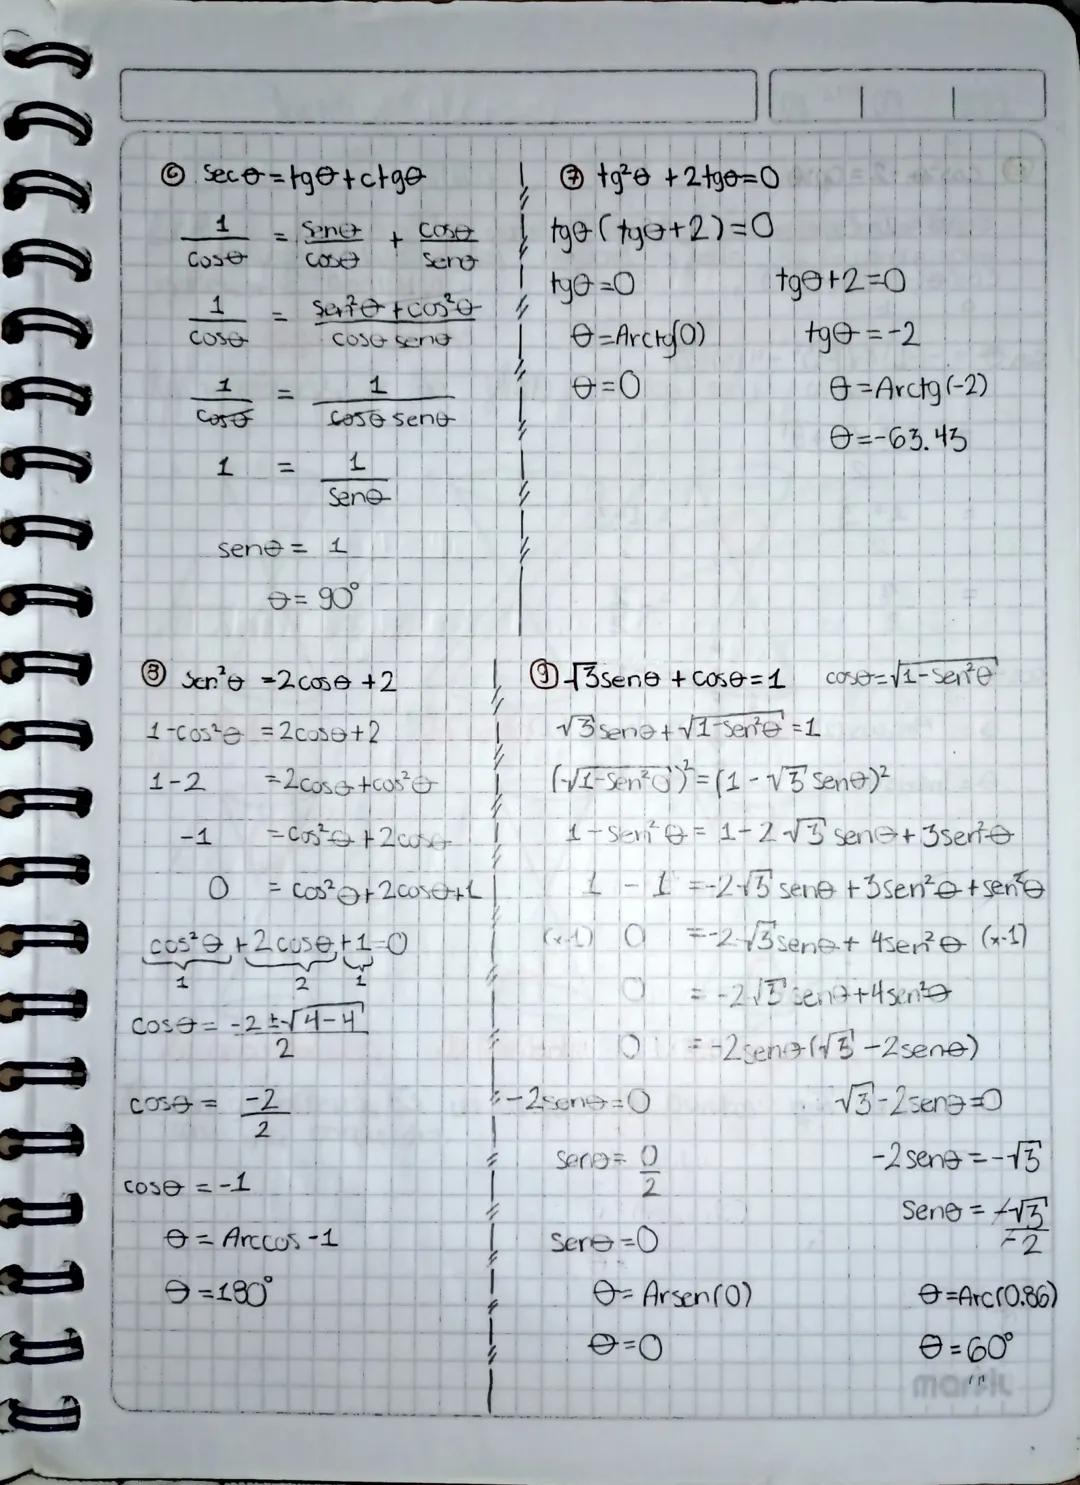 ⑥ secθ=tgθ+ctgθ
1/cosθ = senθ/cosθ + cosθ/senθ
1/cosθ = sen²θ+cos²θ/cosθ senθ
1/cosθ = 1/cosθ senθ
1 = 1/senθ
senθ = 1
θ= 90°
⑦ tg²θ +2tgθ=0
tgθ(tgθ+2)=0
tgθ=0 tgθ+2=0
θ=Arctg(0) tgθ=-2
θ=0 θ=Arctg(-2)
θ=-63.43
⑧ sen²θ =2cosθ+2
1-cos²θ =2cosθ+2
1-2 =2cosθ+cos²θ
-1 =cos²θ+2cosθ
0 = cos²θ+2cosθ+1
cos²θ+2cosθ+1=0
1 2 1
cosθ= -2±√4-4/2
cosθ= -2/2
cosθ=-1
θ=Arccos-1
θ=180°
⑨ √3senθ+cosθ=1 cosθ=√1-sen²θ
√3senθ+√1-sen²θ=1
(√1-sen²θ)²=(1-√3senθ)²
1-sen²θ=1-2√3senθ+3sen²θ
1-1=-2√3senθ+3sen²θ+sen²θ
(x-1) 0 =-2√3senθ+4sen²θ (x-1)
0 =-2√3senθ+4sen²θ
0 =-2senθ(√3-2senθ)
-2senθ=0 √3-2senθ=0
senθ= 0/2 -2senθ=-√3
senθ=0 senθ= -√3/-2
θ=Arsen(0) θ=Arc(0.86)
θ=0 θ=60°